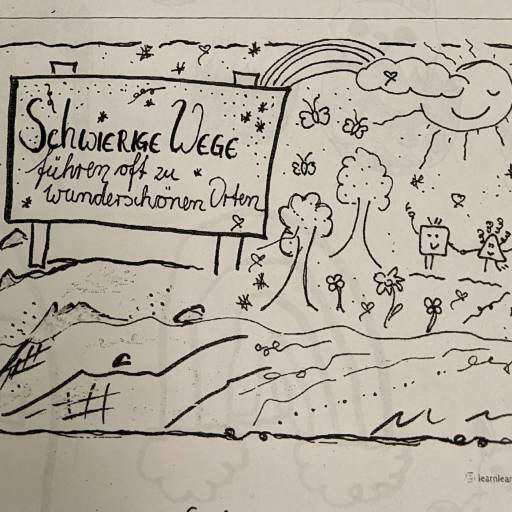 Schwierige Wege
führen oft zu
wunderschönen Orten
learnlear